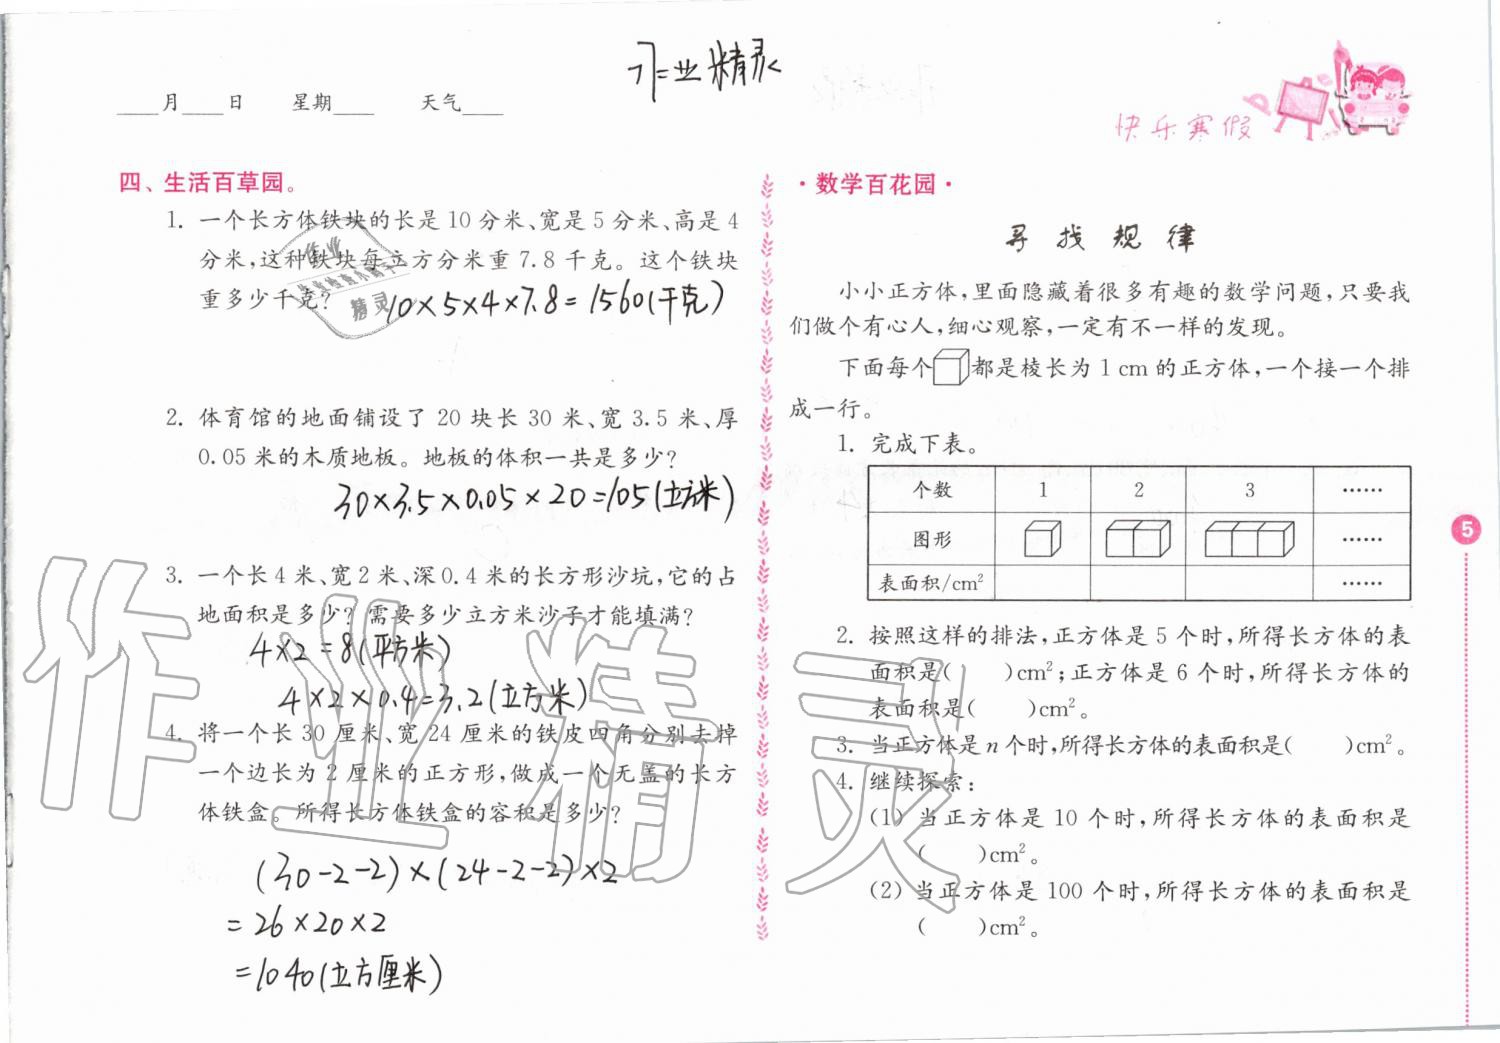 作业精灵
____月____日 星期____ 天气____
快乐寒假
四、生活百草园。
1. 一个长方体铁块的长是 10 分米、宽是 5 分米、高是 4
分米,这种铁块每立方分米重 7.8 千克。这个铁块
重多少千克?
10×5×4×7.8=1560(千克)
2. 体育馆的地面铺设了 20 块长 30 米、宽 3.5 米、厚
0.05 米的木质地板。地板的体积一共是多少?
30×3.5×0.05×20=105(立方米)
3. 一个长 4 米、宽 2 米、深 0.4 米的长方形沙坑,它的占
地面积是多少? 需要多少立方米沙子才能填满?
4×2=8(平方米)
4×2×0.4=3.2(立方米)
4. 将一个长 30 厘米、宽 24 厘米的铁皮四角分别去掉
一个边长为 2 厘米的正方形,做成一个无盖的长方
体铁盒。所得长方体铁盒的容积是多少?
(30-2-2)×(24-2-2)×2
=26×20×2
=1040(立方厘米)
·数学百花园·
寻找规律
小小正方体,里面隐藏着很多有趣的数学问题,只要我
们做个有心人,细心观察,一定有不一样的发现。
下面每个 都是棱长为 1 cm 的正方体,一个接一个排
成一行。
1. 完成下表。
个数 1 2 3 ……
图形 ……
表面积/cm² ……
2. 按照这样的排法,正方体是 5 个时,所得长方体的表
面积是( )cm²;正方体是 6 个时,所得长方体的
表面积是( )cm²。
3. 当正方体是 n 个时,所得长方体的表面积是( )cm²。
4. 继续探索:
(1) 当正方体是 10 个时,所得长方体的表面积是
( )cm²。
(2) 当正方体是 100 个时,所得长方体的表面积是
( )cm²。
5
作业精灵
作业
精灵